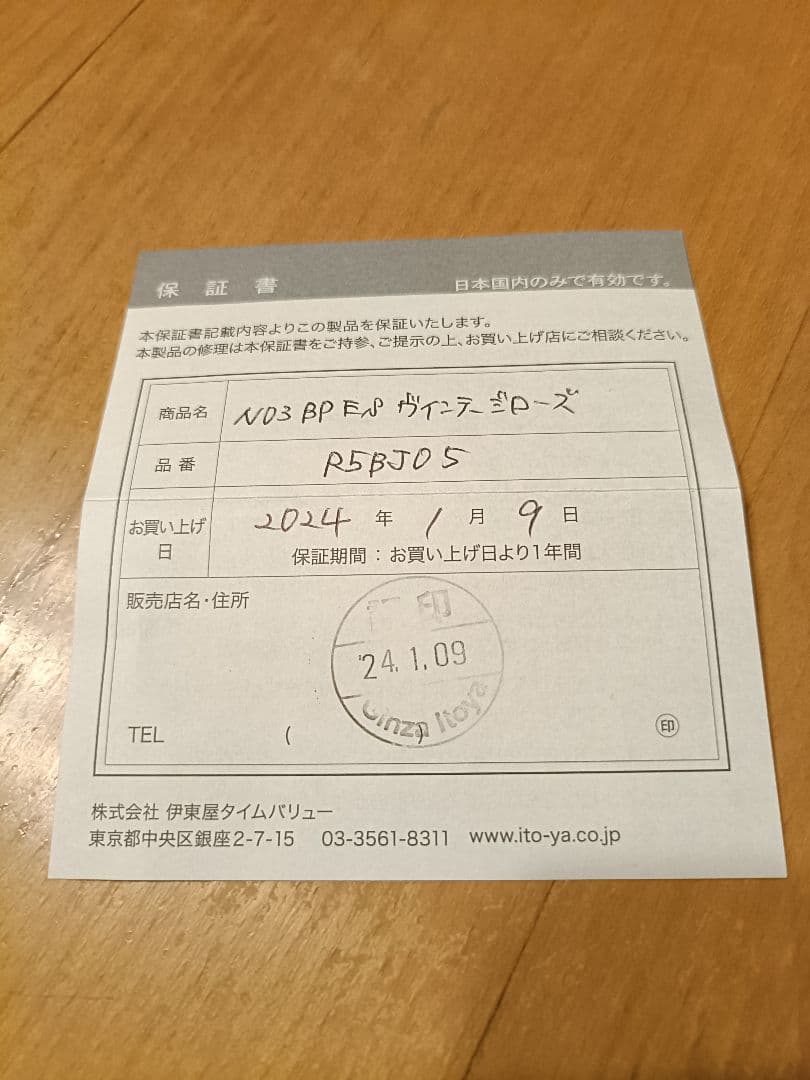 保証書 日本国内のみで有効です。
本保証書記載内容よりこの製品を保証いたします。
本製品の修理は本保証書をご持参、ご提示の上、お買い上げ店にご相談ください。
商品名 NO3 BP ヴィンテージローズ
品番 R5BJ05
お買い上げ日 2024年1月9日
保証期間：お買い上げ日より1年間
販売店名・住所
印
'24.1.09
Ginza Itoya
TEL ( )
印
株式会社 伊東屋タイムバリュー
東京都中央区銀座2-7-15 03-3561-8311 www.ito-ya.co.jp